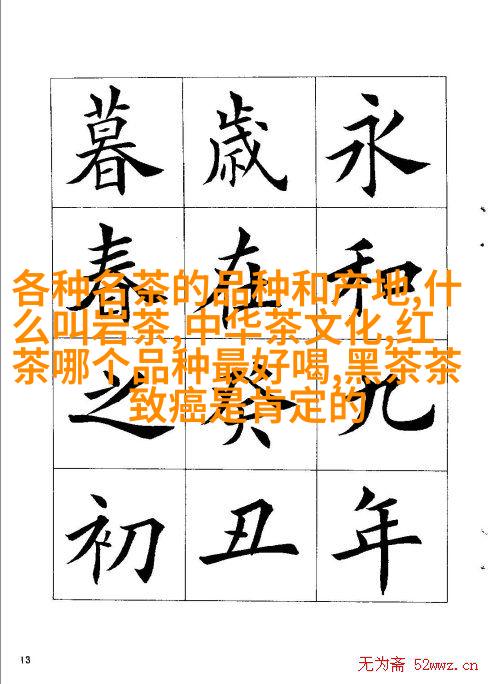 永和九年
歳在癸丑
暮春之初
各种名茶的品种和产地,什
么叫岩茶,中华茶文化,红
茶哪个品种最好喝,黑茶茶
致癌是肯定的
13
无为斋 52wwz.cn